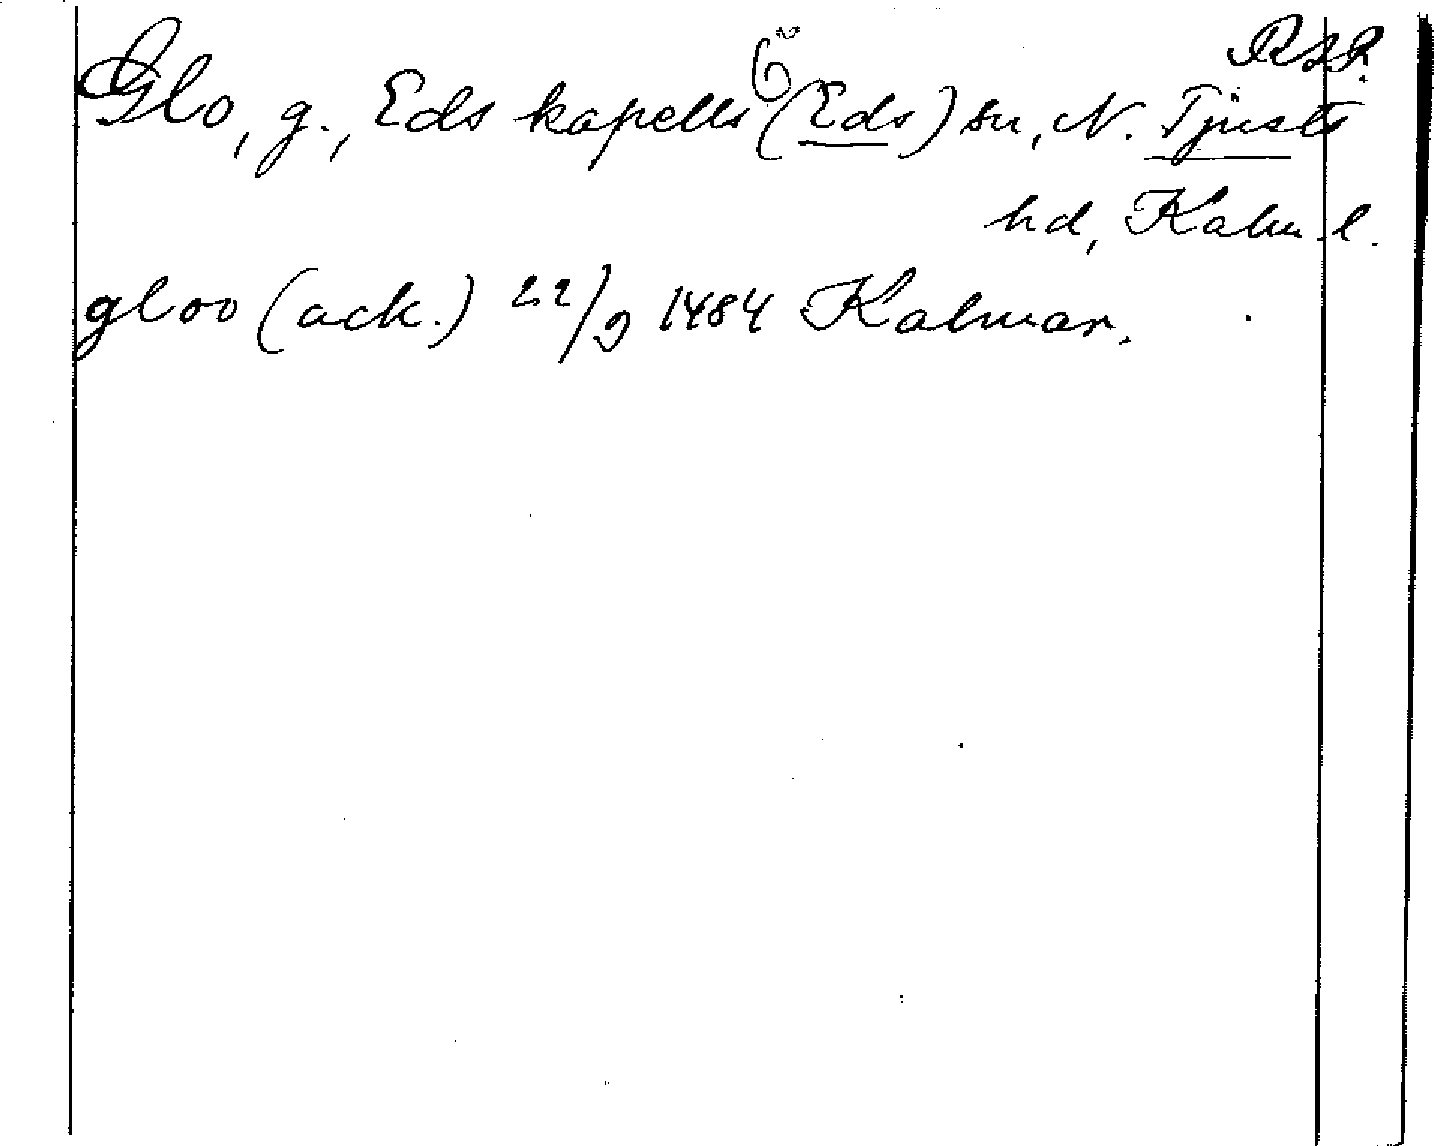 RAP.
Glo, g., Eds kapells (Eds) sn, N. Tjusts
hd, Kalm. l.
gloo (ack.) 22/9 1484 Kalmar.